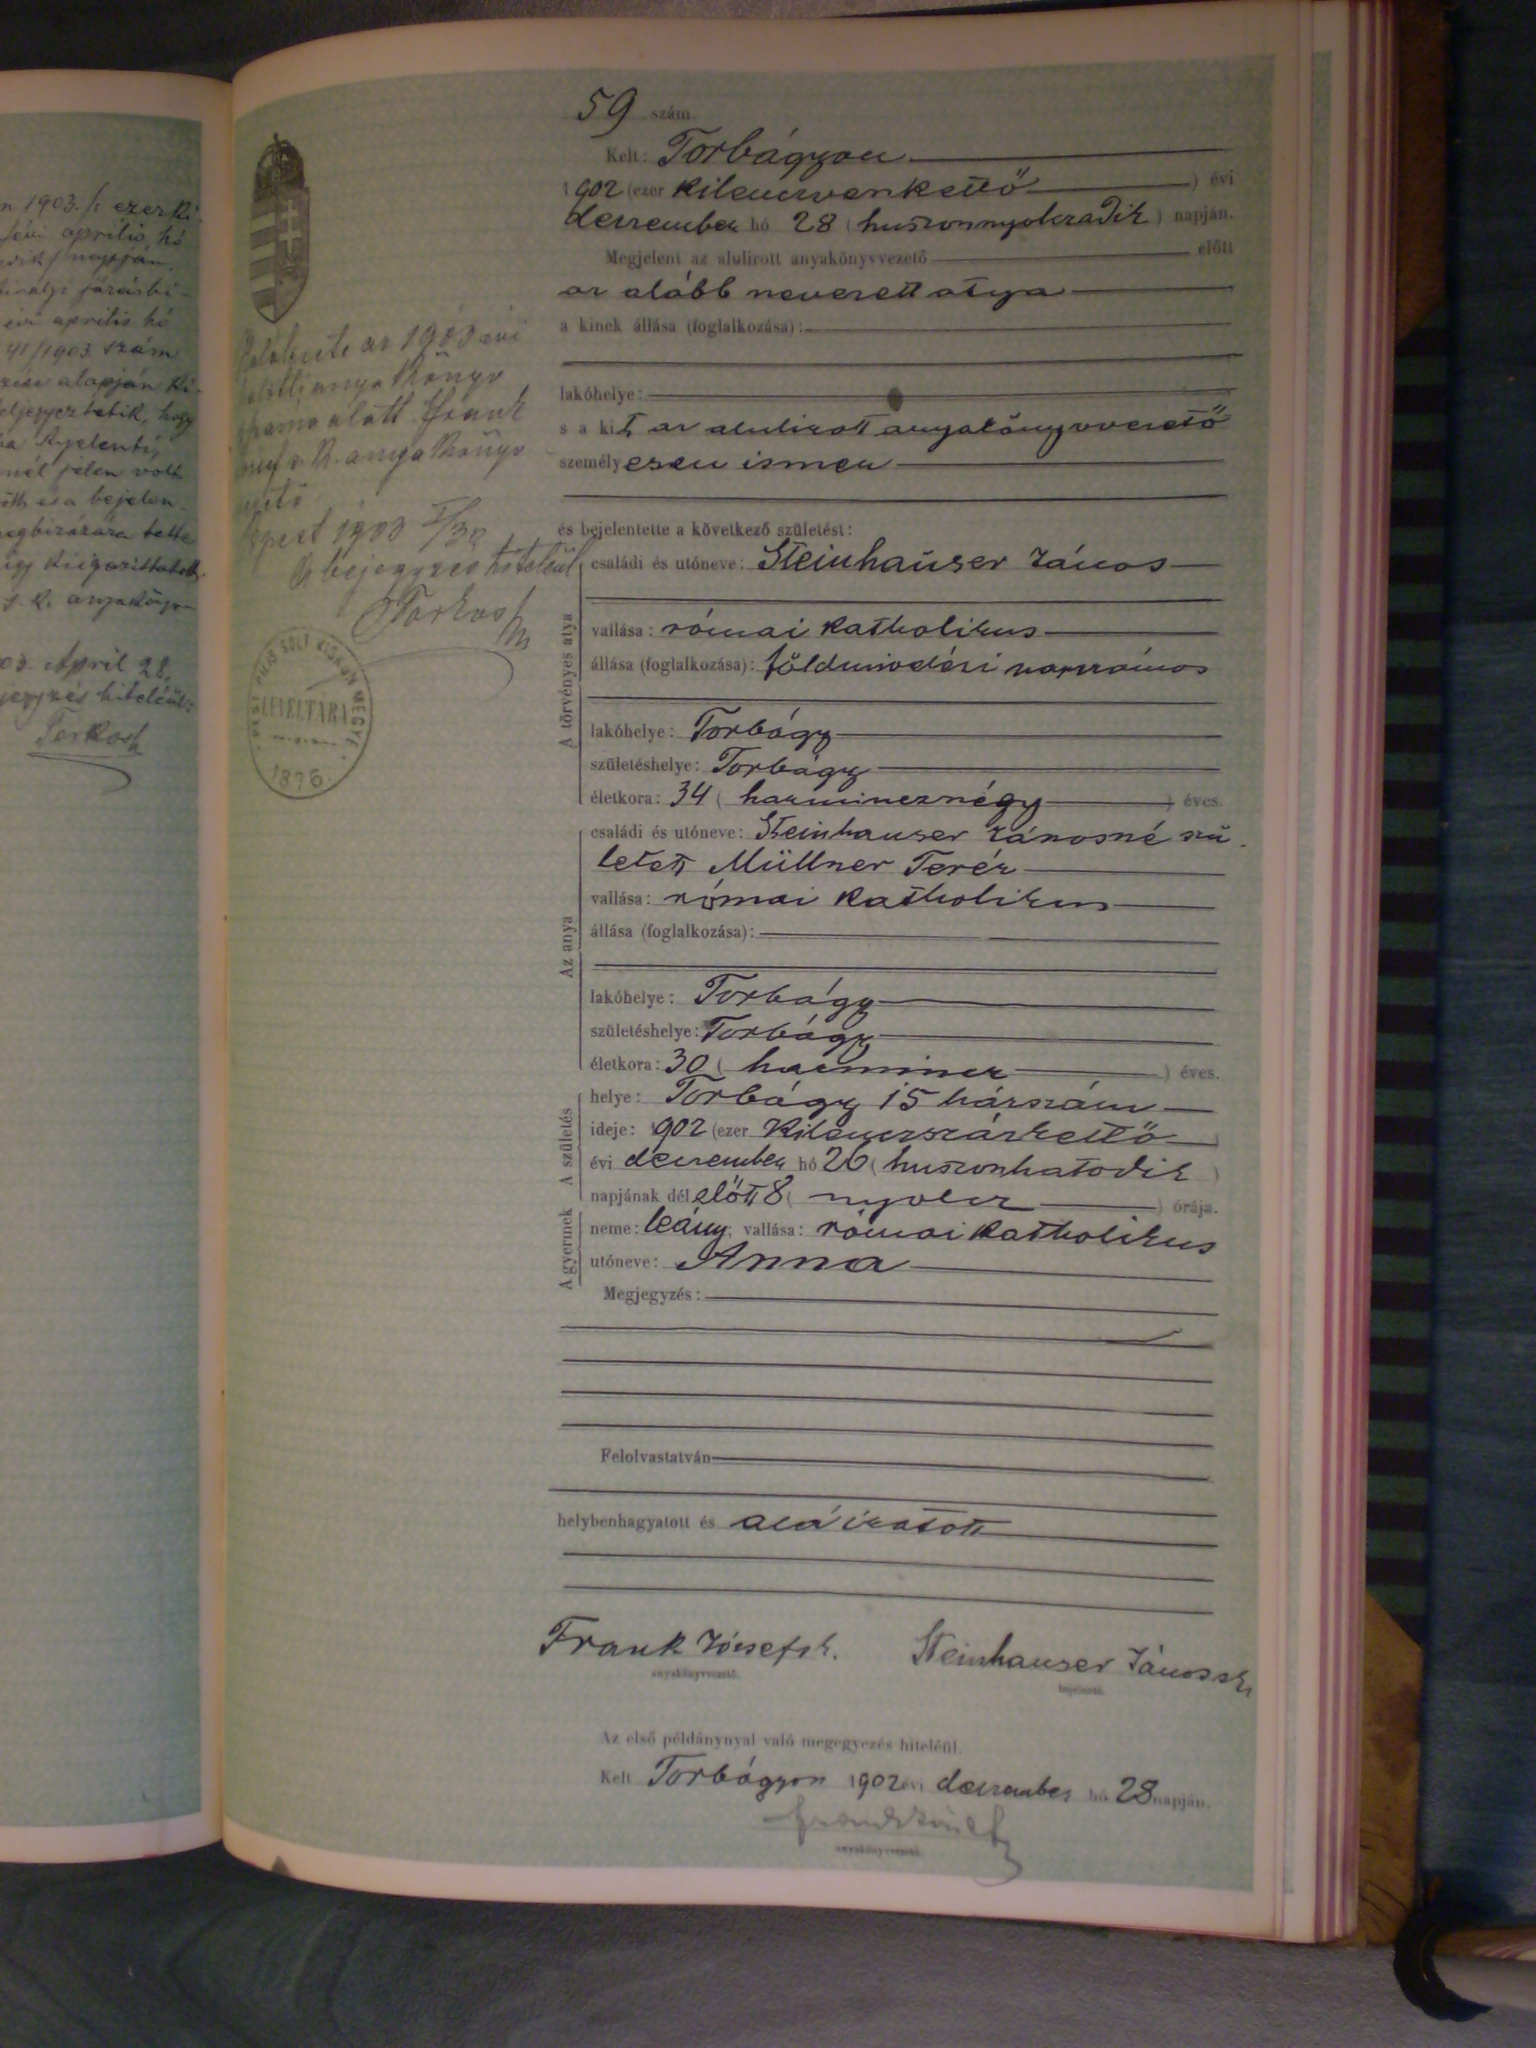 n 1903. ezerki
évi április hó
napján
járásbi-
évi április hó
41/1903 szám
alapján ki-
feljegyeztetik, hogy
jelen volt
és a bejelen-
tette
anyakönyv
April 28.
jegyzés hiteléül:
Terkosh
59 szám.
Kelt: Torbágyon
1902 (ezer kilencvenkettő) évi
deczember hó 28 (huszonnyolczadik) napján.
Megjelent az alulirott anyakönyvvezető előtt
az alább nevezett atya
a kinek állása (foglalkozása):
lakóhelye:
s a kit az alulirott anyakönyvvezető
személyesen ismer
és bejelentette a következő születést:
A törvényes atya
családi és utóneve: Steinhauser János
vallása: római katholikus
állása (foglalkozása): földmivelési napszámos
lakóhelye: Torbágy
születéshelye: Torbágy
életkora: 34 (harmincznégy) éves.
Az anya
családi és utóneve: Steinhauser Jánosné szü-
letett Müllner Teréz
vallása: római katholikus
állása (foglalkozása):
lakóhelye: Torbágy
születéshelye: Torbágy
életkora: 30 (harmincz) éves.
A születés
helye: Torbágy 15 házszám
ideje: 1902 (ezer kilenczszázkettő)
évi deczember hó 26 (huszonhatodik)
napjának dél előtt 8 (nyolcz) órája.
A gyermek
neme: leány; vallása: római katholikus
utóneve: Anna
Megjegyzés:
Felolvastatván
helybenhagyatott és aláiratott
Frank József sk. Steinhauser János sk.
anyakönyvvezető. bejelentő.
Az első példánynyal való megegyezés hiteléül.
Kelt Torbágyon 1902 évi deczember hó 28 napján.
anyakönyvvezető.
az 1903 évi
anyakönyv
alatt Frank
József s. k. anyakönyv
vezető
1903
A bejegyzés hiteléül
Terkosh
PEST PILIS SOLT KISKUN MEGYE
LEVÉLTÁRA
1876.